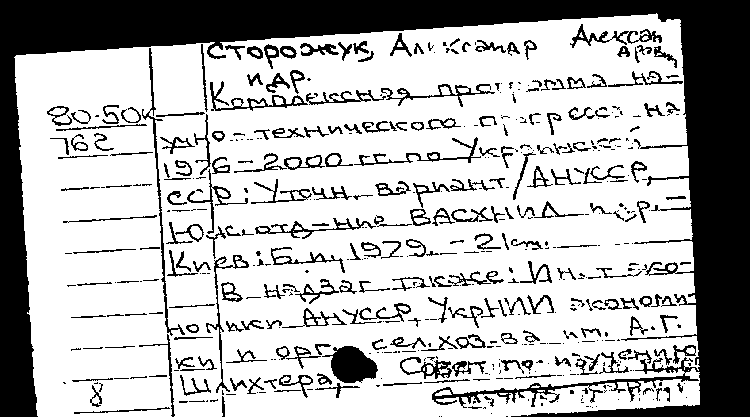 Сторожук, Александр Алексан
и др.
Комплексная программа на-
80-50к-
762
учно-технического прогресса на
1976-2000 гг. по Украинской
ССР: Уточн. вариант / АН УССР,
Юж. отд-ние ВАСХНИЛ и др. -
Киев: Б. и., 1979. - 2 кн.
В надзаг также: Ин-т эко-
номики АН УССР, УкрНИИ экономи-
ки и орг. сел. хоз-ва им. А.Г.
Шлихтера, Совет по изучению
8